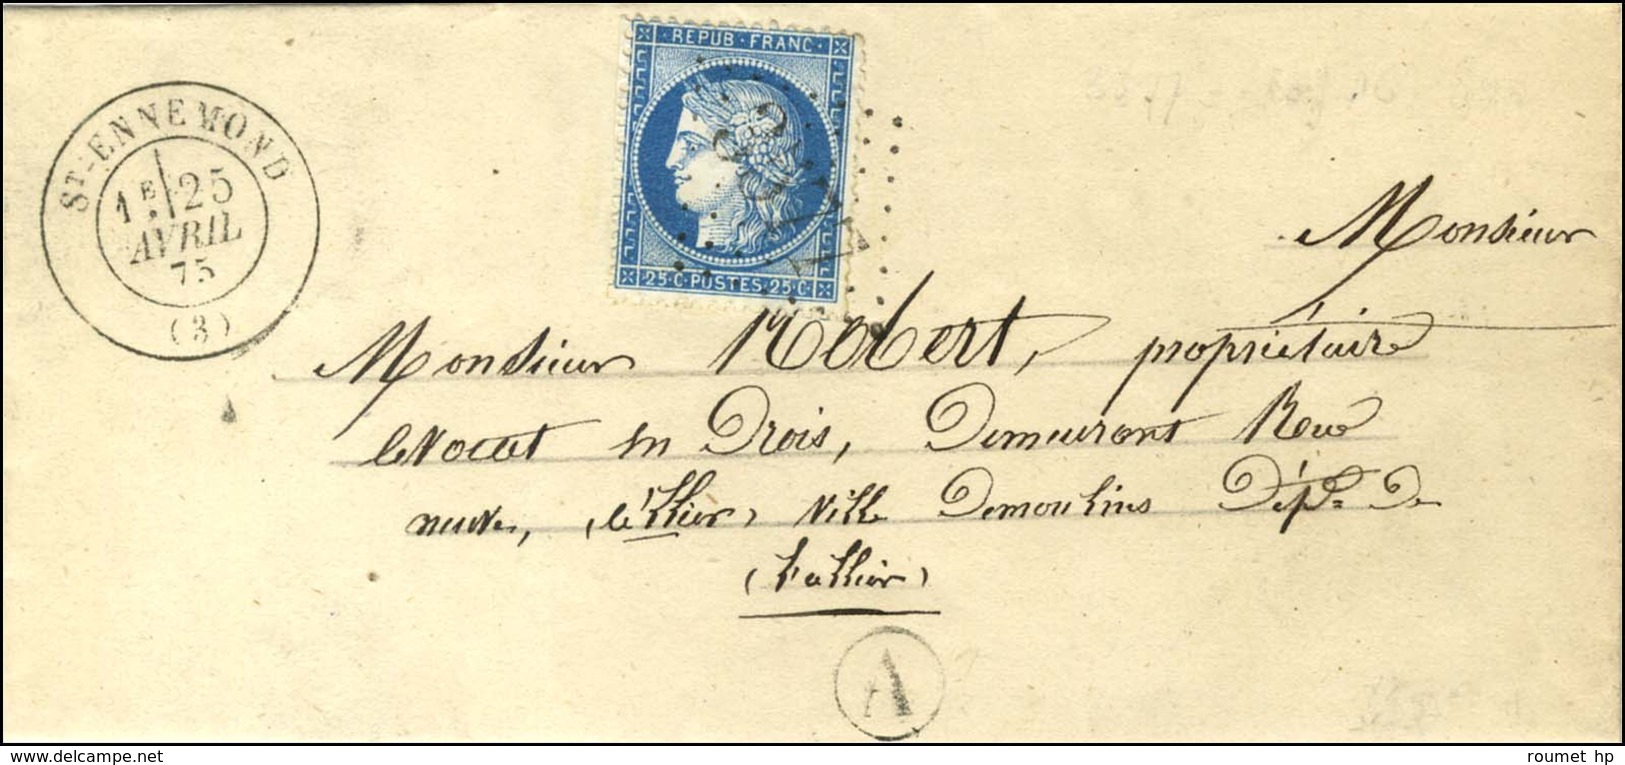 REPUB·FRANC·
25·C·POSTES·25·C·
ST-ENNEMOND
1E 25
AVRIL
75
(3)
Monsieur
Monsieur Robert, propriétaire
en Drois, Demeurant Rue
neuve, ville Demoulins Dépt De
(l'allier)
A
roumet hp